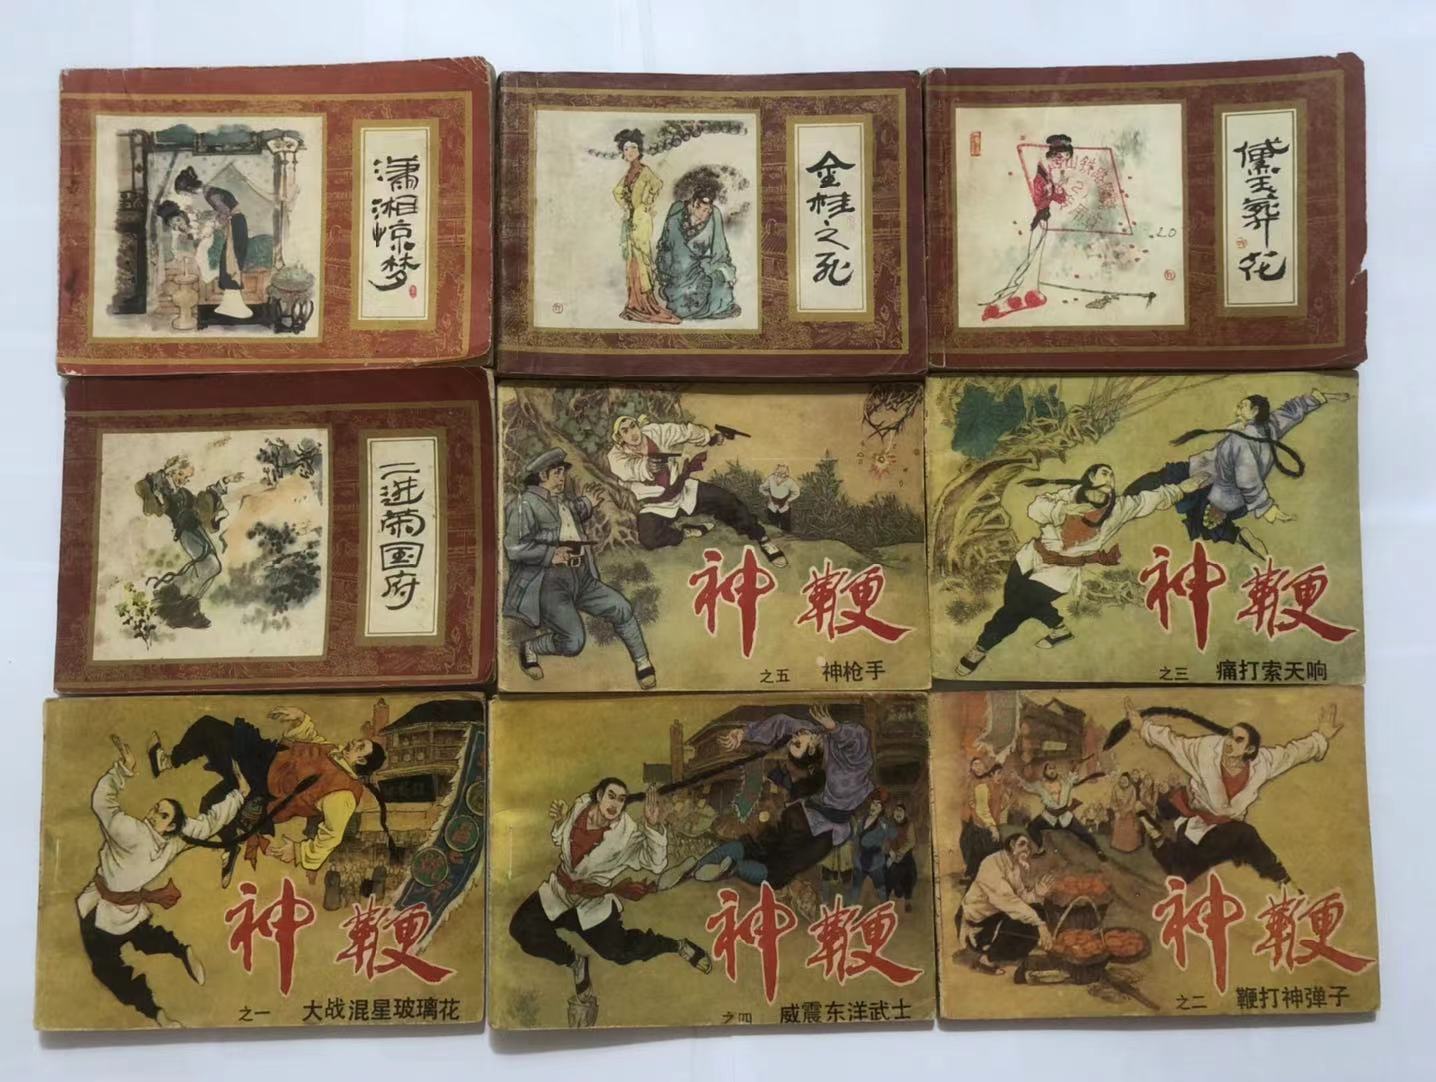 潇湘惊梦
金桂之死
黛玉葬花
20
二进荣国府
神鞭
之五 神枪手
神鞭
之三 痛打索天响
神鞭
之一 大战混星玻璃花
神鞭
之四 威震东洋武士
神鞭
之二 鞭打神弹子